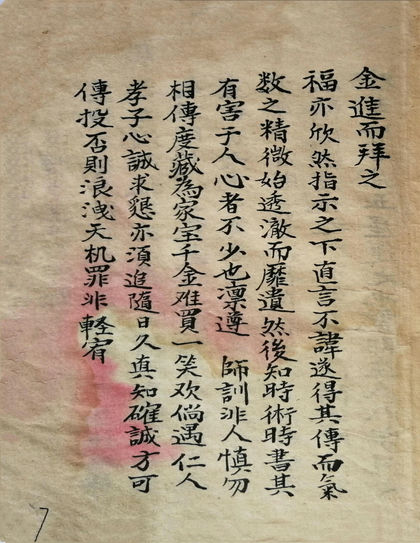 金進而拜之
福亦欣然指示之下直言不諱遂得其傳而氣
数之精微始透澈而靡遺然後知時術時書其
有害于人心者不少也凛遵 師訓非人慎勿
相傳庋藏為家宝千金难買一笑欢倘遇仁人
孝子心誠求懇亦須追隨日久真知確誠方可
傳授否則浪洩天机罪非輕宥
7